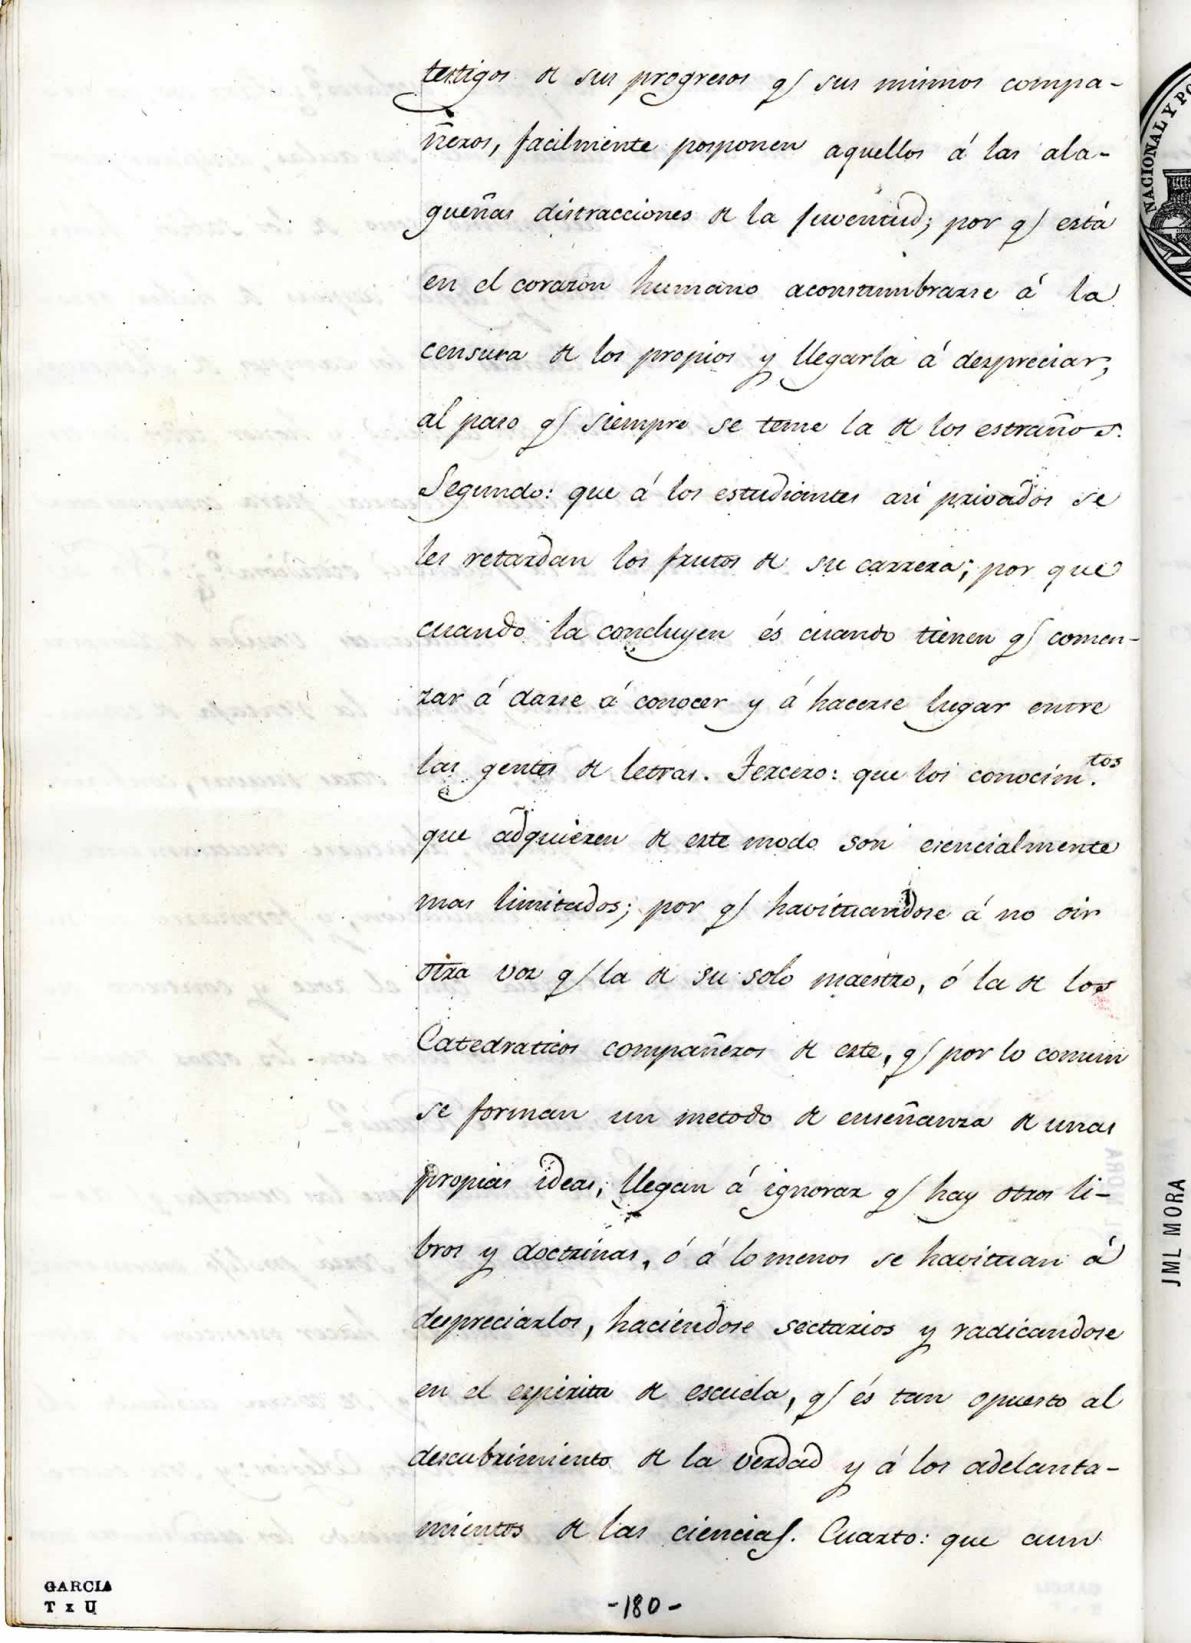 testigos de sus progresos q̃ sus mismos compa-
ñeros, facilmente posponen aquellos á las ala-
gueñas distracciones de la juventud; por q̃ está
en el corazon humano acostumbrarse á la
censura de los propios y llegarla á despreciar;
al paso q̃ siempre se teme la de los estraños.
Segundo: que á los estudiantes asi privados se
les retardan los frutos de su carrera; por que
cuando la concluyen és cuando tienen q̃ comen-
zar á darse á conocer y á hacerse lugar entre
las gentes de letras. Tercero: que los conocim.tos
que adquieren de este modo son esencialmente
mas limitados; por q̃ havituandose á no oir
otra voz q̃ la de su solo maestro, ó la de los
Catedraticos compañeros de este, q̃ por lo comun
se forman un metodo de enseñanza de unas
propias ideas, llegan á ignorar q̃ hay otros li-
bros y doctrinas, ó á lo menos se havituan á
despreciarlos, haciendose sectarios y radicandose
en el espiritu de escuela, q̃ és tan opuesto al
descubrimiento de la verdad y á los adelanta-
mientos de las ciencias. Cuarto: que aun
-180-
GARCIA
T x U
NACIONAL Y PO
JML MORA